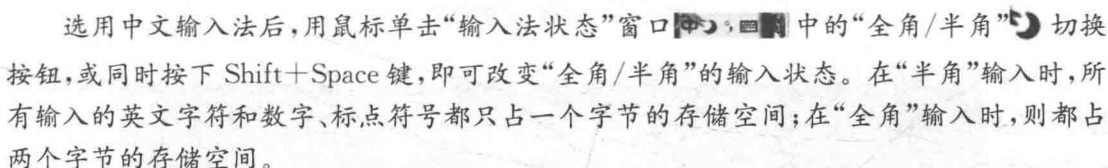 选用中文输入法后,用鼠标单击“输入法状态”窗口中的“全角/半角”切换
按钮,或同时按下 Shift+Space 键,即可改变“全角/半角”的输入状态。在“半角”输入时,所
有输入的英文字符和数字、标点符号都只占一个字节的存储空间;在“全角”输入时,则都占
两个字节的存储空间。